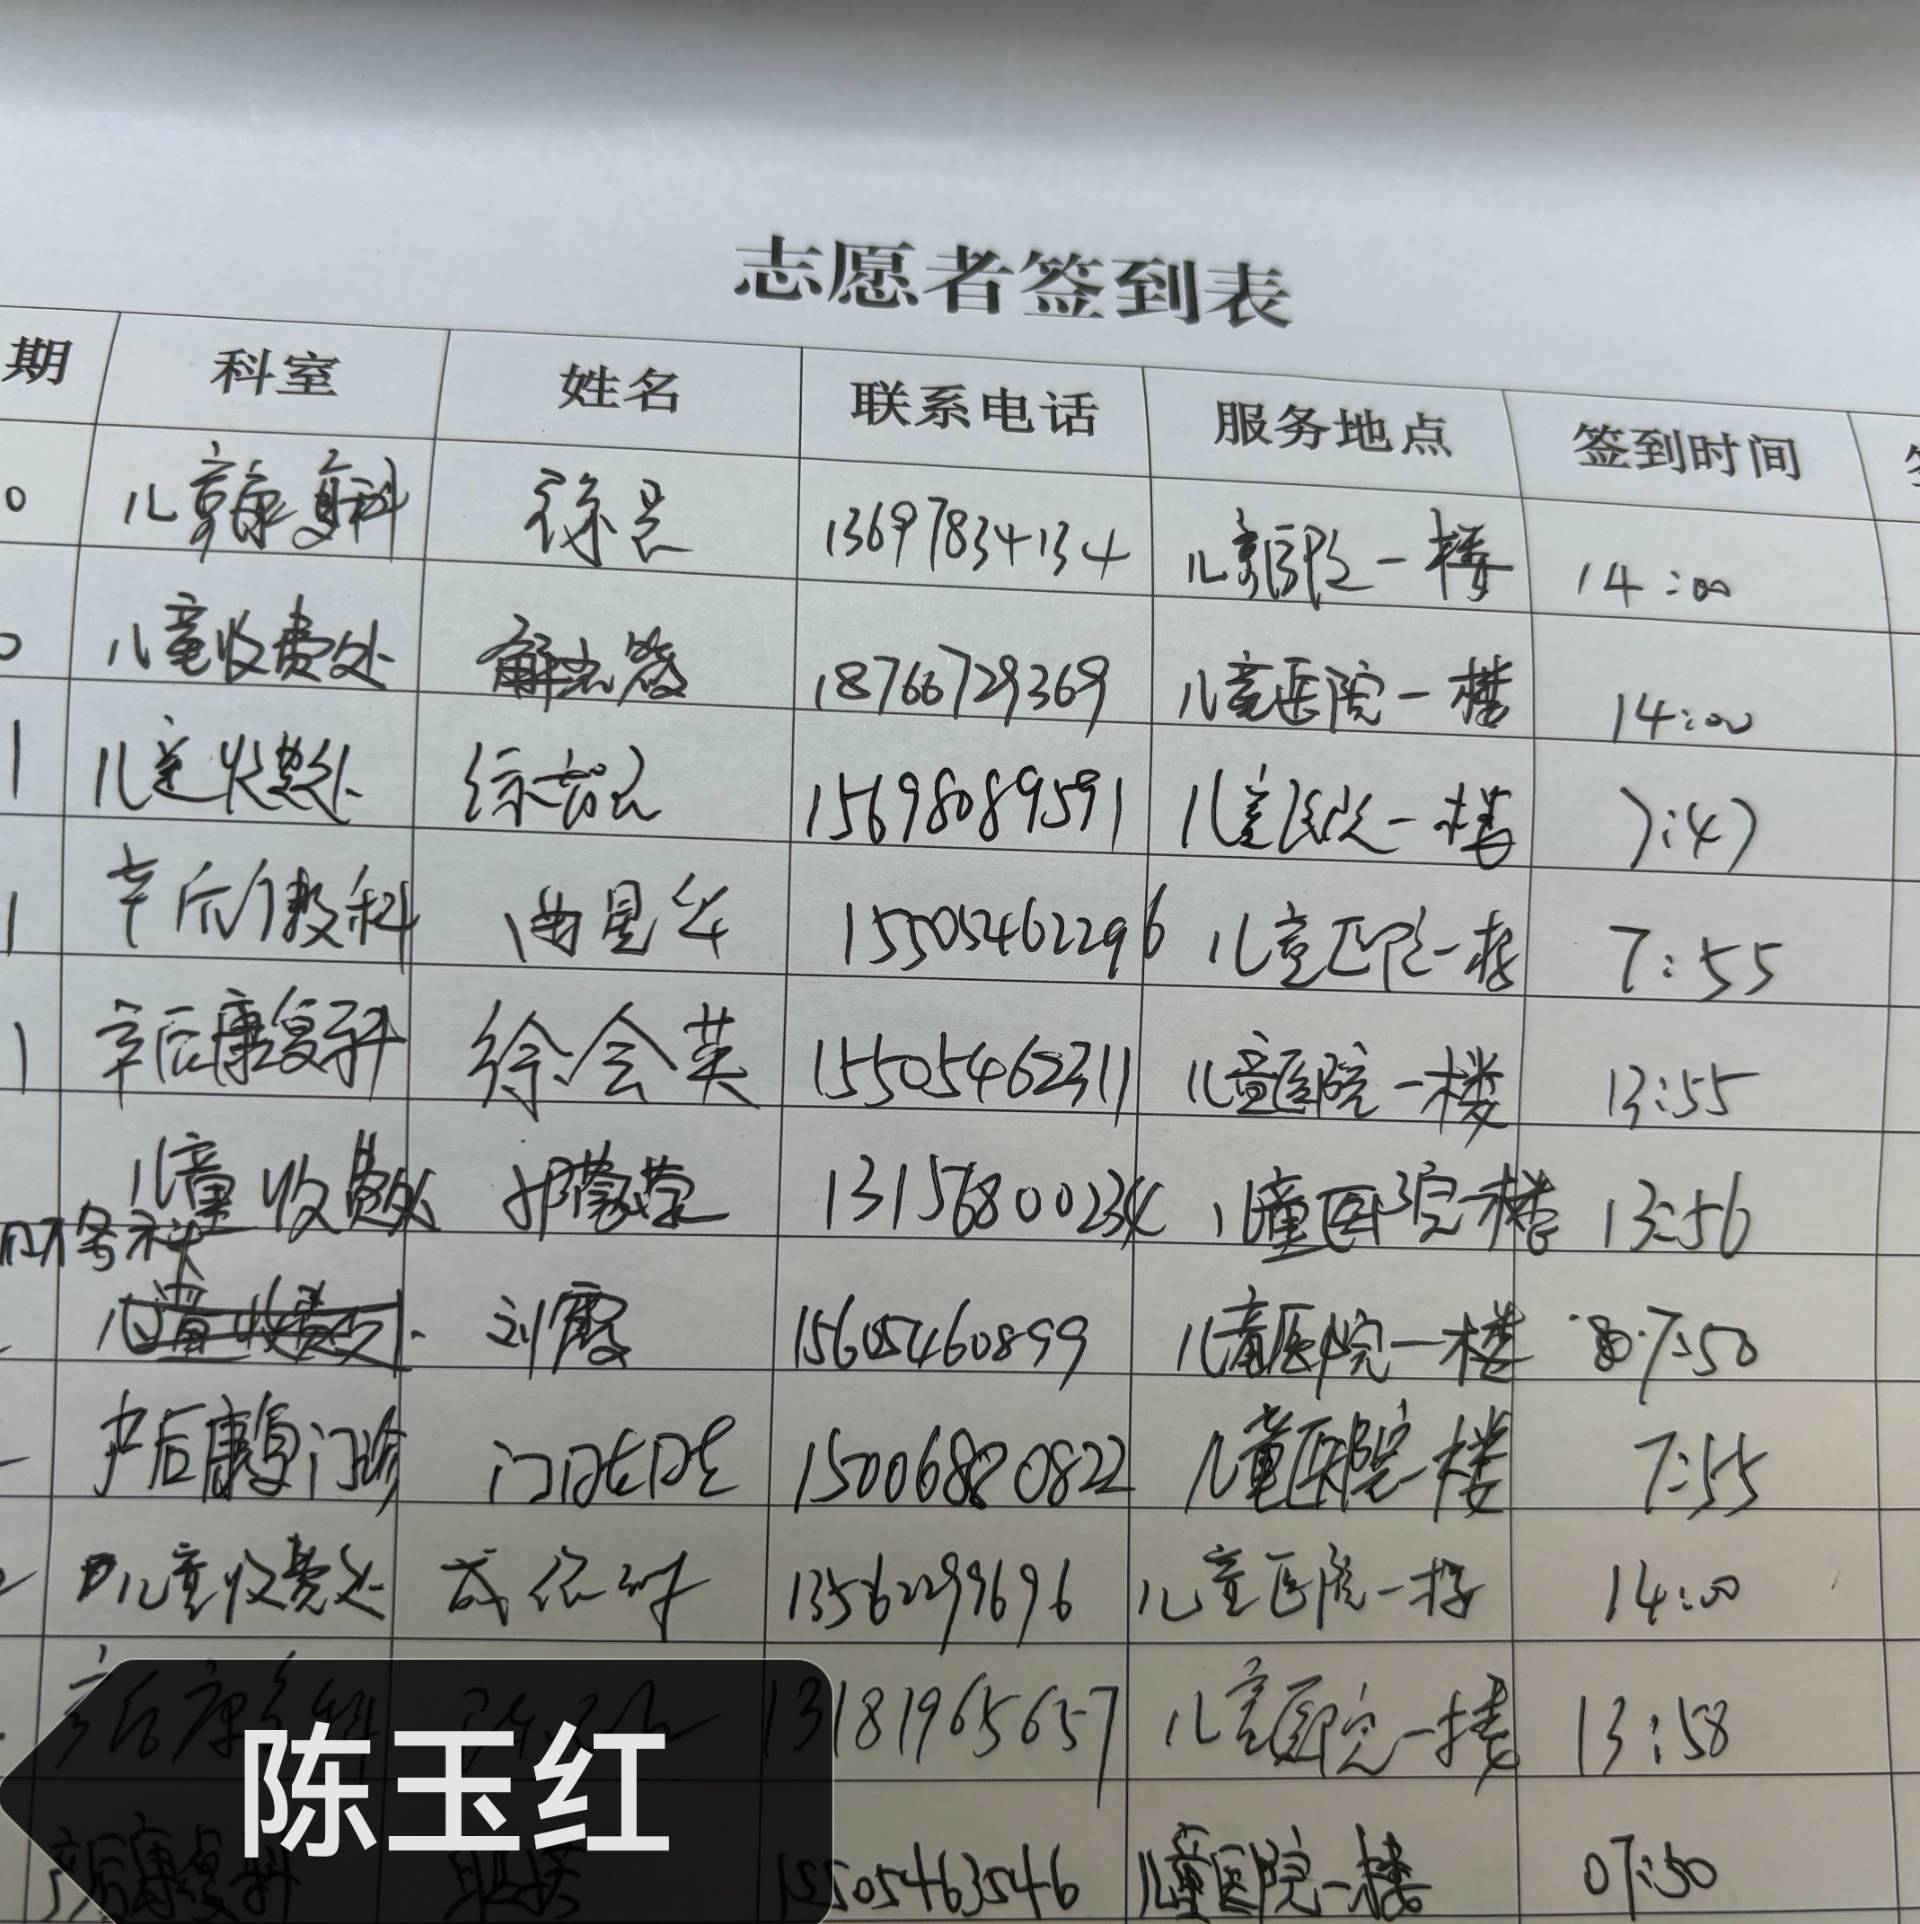 志愿者签到表
期 科室 姓名 联系电话 服务地点 签到时间
0 儿童康复科 徐 13697834134 儿童医院一楼 14:00
儿童收费处 解 18766729369 儿童医院一楼 14:00
1 儿童收费处 15698089591 儿童医院一楼 7:47
1 产后康复科 曲星华 15505462296 儿童医院一楼 7:55
1 产后康复科 徐会英 15505462311 儿童医院一楼 13:55
儿童收费处 13156800234 儿童医院一楼 13:56
财务科
儿童收费处 刘霞 15605460899 儿童医院一楼 7:50
产后康复门诊 15006820822 儿童医院一楼 7:55
儿童收费处 13562299696 儿童医院一楼 14:00
产后康复科 13181965657 儿童医院一楼 13:58
陈玉红
产后康复科 15505463546 儿童医院一楼 07:50